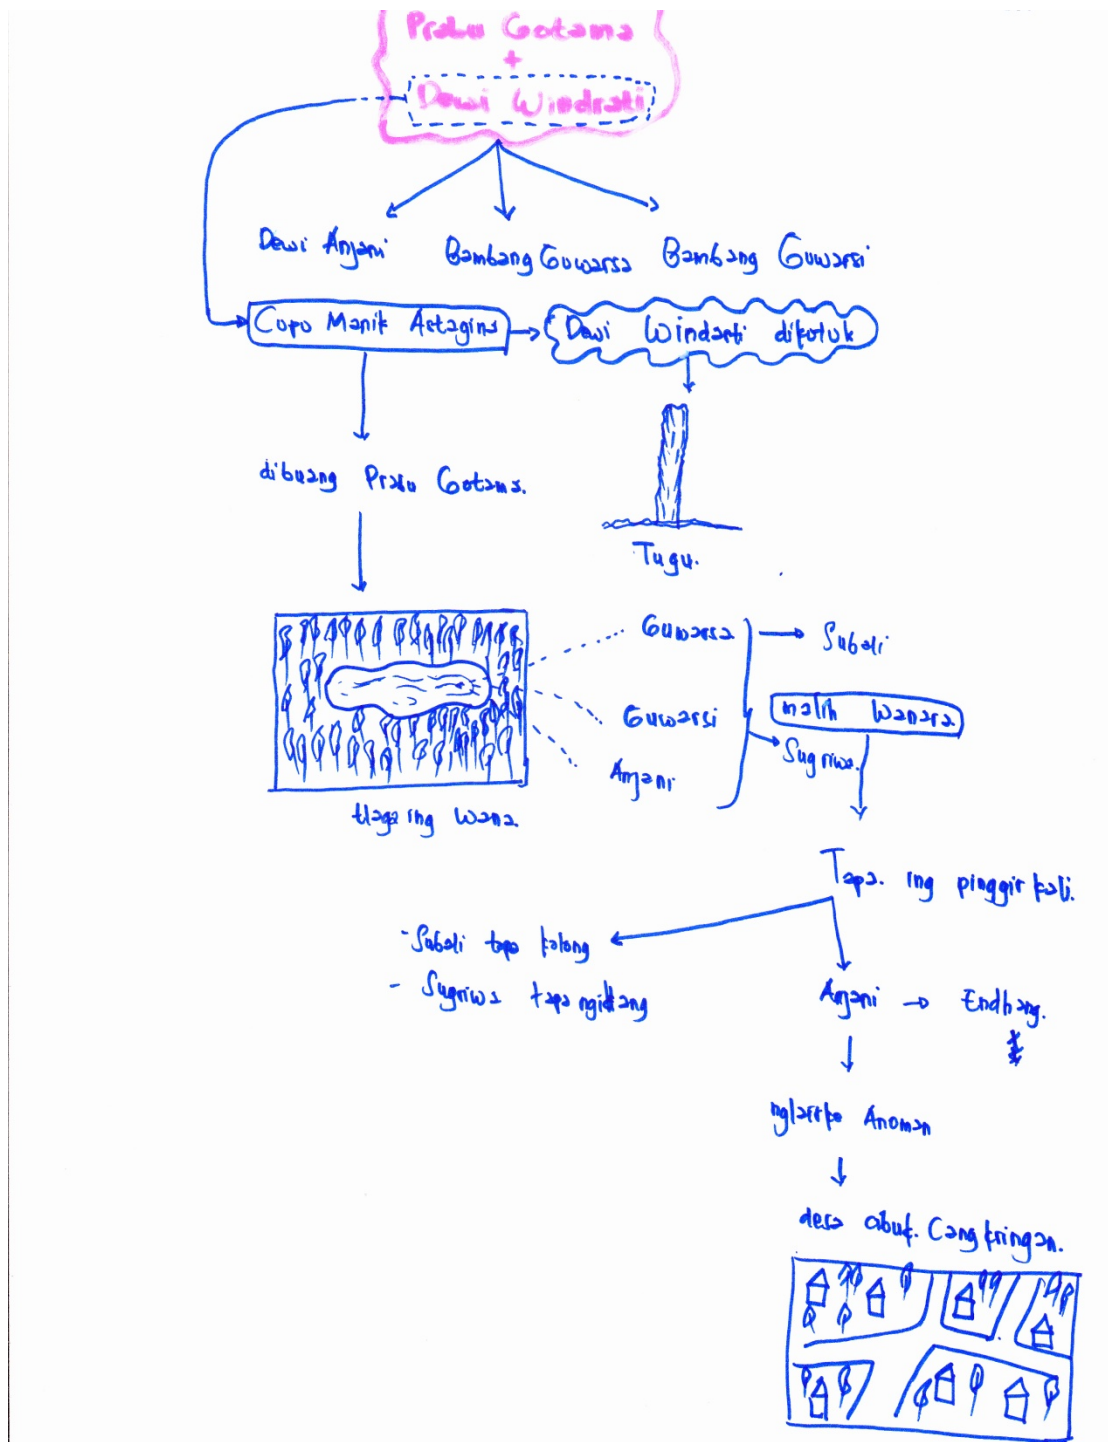 Prabu Gotama
+
Dewi Windrati
Dewi Anjani
Bambang Guwarsa
Bambang Guwarsi
Cupo Manik Astagina
Dewi Windarti dikutuk
dibuang Prabu Gotama.
Tugu.
Guwarsa
Subali
Guwarsi
malih Wanara
Sugriwa.
Anjani
tlaga ing Wana.
Tapa. ing pinggir kali.
- Subali tapa kalong
- Sugriwa tapa ngidang
Anjani → Endhang.
Anoman
desa Cangkringan.